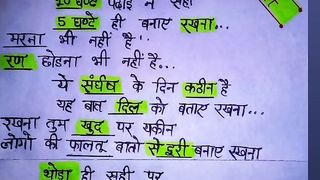 10 घण्टे पढाई न सही
5 घण्टे ही बनाए रखना...
मरना भी नहीं है"
रण छोडना भी नहीं है...
ये संर्घष के दिन कठीन है
यह बात दिल को बताए रखना...
रखना तुम खुद पर यकीन
लोगो की फालतू बातो से दुरी बनाए रखना
थोडा ही सही पर